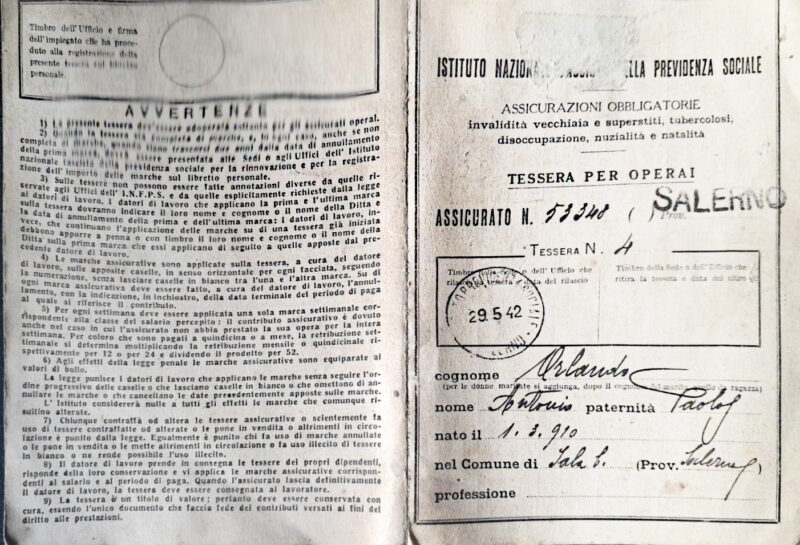 Timbro dell'Ufficio e firma
dell'impiegato che ha proce-
duto alla registrazione della
presente tessera sul libretto
personale.
AVVERTENZE
1) La presente tessera dev'essere adoperata soltanto per gli assicurati operai.
2) Quando la tessera sia completa di marche, o, in ogni caso, anche se non
completa di marche, quando siano decorsi due anni dalla data di annullamento
della prima marca, deve essere presentata alle Sedi o agli Uffici dell'Istituto
nazionale fascista della previdenza sociale per la rinnovazione e per la registra-
zione dell'importo delle marche sul libretto personale.
3) Sulle tessere non possono essere fatte annotazioni diverse da quelle ri-
servate agli Uffici dell'I.N.F.P.S. e da quelle esplicitamente richieste dalla legge
ai datori di lavoro. I datori di lavoro che applicano la prima e l'ultima marca
sulla tessera dovranno indicare il loro nome e cognome o il nome della Ditta e
la data di annullamento della prima e dell'ultima marca: I datori di lavoro, in-
vece, che continuano l'applicazione delle marche su di una tessera già iniziata
debbono apporre a penna o con timbro il loro nome e cognome o il nome della
Ditta sulla prima marca che essi applicano di seguito a quelle apposte dal pre-
cedente datore di lavoro.
4) Le marche assicurative sono applicate sulla tessera, a cura del datore
di lavoro, sulle apposite caselle, in senso orizzontale per ogni facciata, seguendo
la numerazione, senza lasciare caselle in bianco tra l'una e l'altra marca. Su di
ogni marca assicurativa deve essere fatto, a cura del datore di lavoro, l'annul-
lamento, con la indicazione, in inchiostro, della data terminale del periodo di paga
al quale si riferisce il contributo.
5) Per ogni settimana deve essere applicata una sola marca settimanale cor-
rispondente alla classe del salario percepito: il contributo assicurativo è dovuto
anche nel caso in cui l'assicurato non abbia prestato la sua opera per l'intera
settimana. Per coloro che sono pagati a quindicina o a mese, la retribuzione set-
timanale si determina moltiplicando la retribuzione mensile o quindicinale ri-
spettivamente per 12 o per 24 e dividendo il prodotto per 52.
6) Agli effetti della legge penale le marche assicurative sono equiparate ai
valori di bollo.
La legge punisce i datori di lavoro che applicano le marche senza seguire l'or-
dine progressivo delle caselle o che lasciano caselle in bianco o che omettono di an-
nullare le marche o che cancellano le date precedentemente apposte sulle marche.
L'Istituto considererà nulle a tutti gli effetti le marche che comunque ri-
sultino alterate.
7) Chiunque contraffà od altera le tessere assicurative o scientemente fa
uso di tessere contraffatte od alterate o le pone in vendita o altrimenti in circo-
lazione è punito dalla legge. Egualmente è punito chi fa uso di marche annullate
o le pone in vendita o le mette altrimenti in circolazione o fa uso illecito di tessere
in bianco o ne rende possibile l'uso illecito.
8) Il datore di lavoro prende in consegna le tessere dei propri dipendenti,
risponde della loro conservazione e vi applica le marche assicurative corrispon-
denti al salario e al periodo di paga. Quando l'assicurato lascia definitivamente
il datore di lavoro, la tessera deve essere consegnata al lavoratore.
9) La tessera è un titolo di valore; pertanto deve essere conservata con
cura, essendo l'unico documento che faccia fede dei contributi versati ai fini del
diritto alle prestazioni.
ISTITUTO NAZIONALE DELLA PREVIDENZA SOCIALE
ASSICURAZIONI OBBLIGATORIE
invalidità vecchiaia e superstiti, tubercolosi,
disoccupazione, nuzialità e natalità
TESSERA PER OPERAI
ASSICURATO N. 53348 ( ) Prov. SALERNO
TESSERA N. 4
Timbro dell'Ufficio che
rilascia la tessera e data del rilascio
Timbro della Sede o dell'Ufficio che
ritira la tessera e data del ritiro
29.5.42
cognome Orlando
(per le donne maritate si aggiunga, dopo il cognome del marito quello da ragazza)
nome Antonio paternità Paolo
nato il 1.3.910
nel Comune di Sala C. (Prov. Salerno)
professione